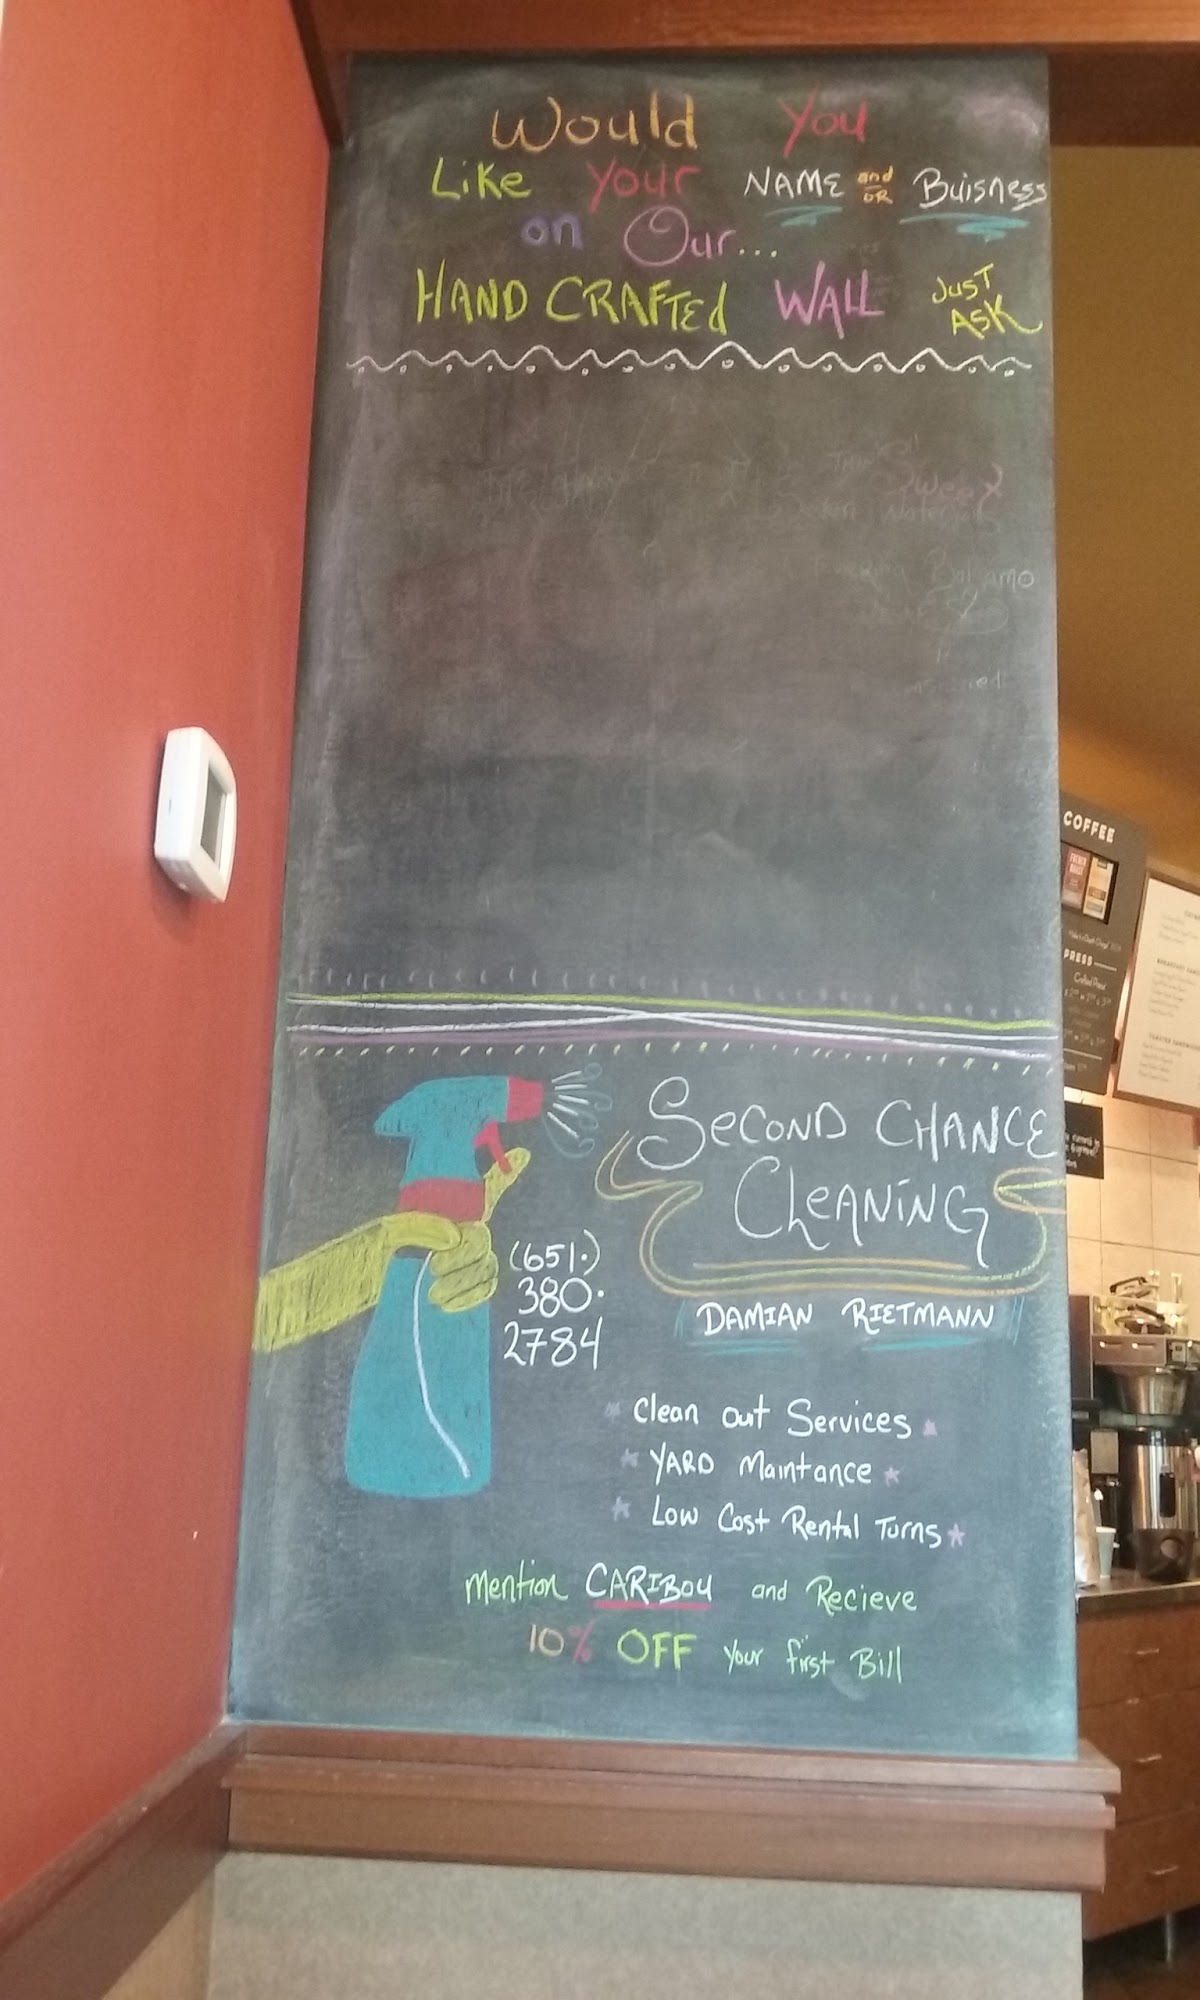 Would You
Like Your NAME and OR Buisness
on Our...
HAND CRAFTED WALL JUST ASK
Sweet
SECOND CHANCE
CLEANING
(651.)
380.
2784
DAMIAN RIETMANN
Clean out Services
YARD Maintance
Low Cost Rental Turns
Mention CARIBOU and Recieve
10% OFF your first Bill
COFFEE
PRESS